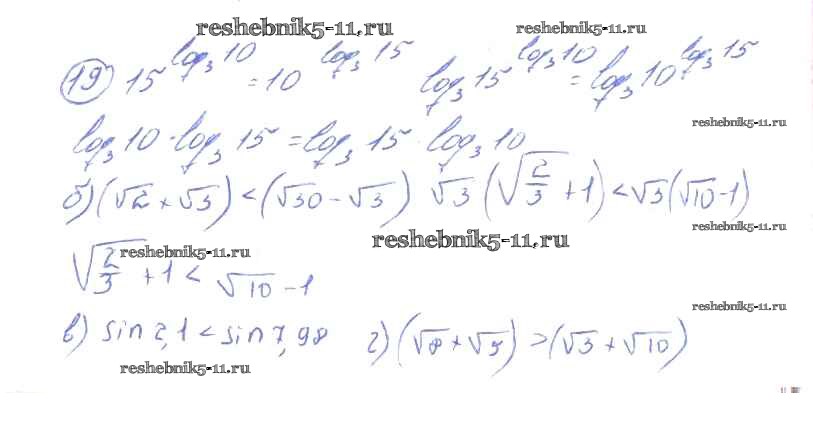 reshebnik5-11.ru reshebnik5-11.ru
19) 15^(log₃10) = 10^(log₃15) log₃15^(log₃10) = log₃10^(log₃15)
reshebnik5-11.ru
log₃10 · log₃15 = log₃15 · log₃10
б) (√2 + √3) < (√30 - √3) √3(√(2/3) + 1) < √3(√10 - 1)
reshebnik5-11.ru
reshebnik5-11.ru
reshebnik5-11.ru
√(2/3) + 1 < √10 - 1
reshebnik5-11.ru
в) sin 2,1 < sin 7,98 г) (√8 + √5) > (√3 + √10)
reshebnik5-11.ru